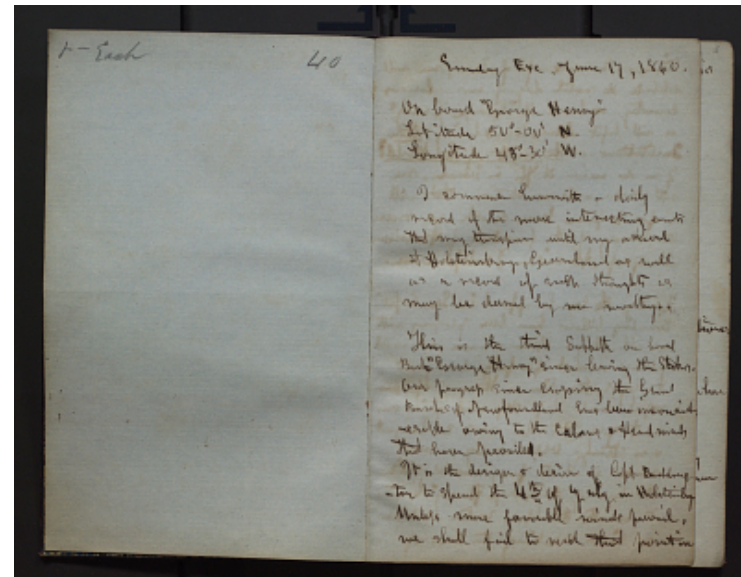 40
Sunday Eve June 17, 1860.
On board "George Henry"
Latitude 50°-00' N.
Longitude 48°-30' W.
I commence herewith a daily
record of the more interesting events
that may transpire until my arrival
at Holsteinborg, Greenland as well
as a record of such thoughts as
may be deemed by me worthy.
This is the third Sabbath on board
Bark "George Henry" since leaving the States.
Our progress since crossing the Grand
Banks of Newfoundland has been
owing to the Calms & Head winds
that have prevailed.
It is the design & desire of Capt
to spend the 4th of July in Holsteinborg
Unless more favorable winds prevail,
we shall fail to reach that point in